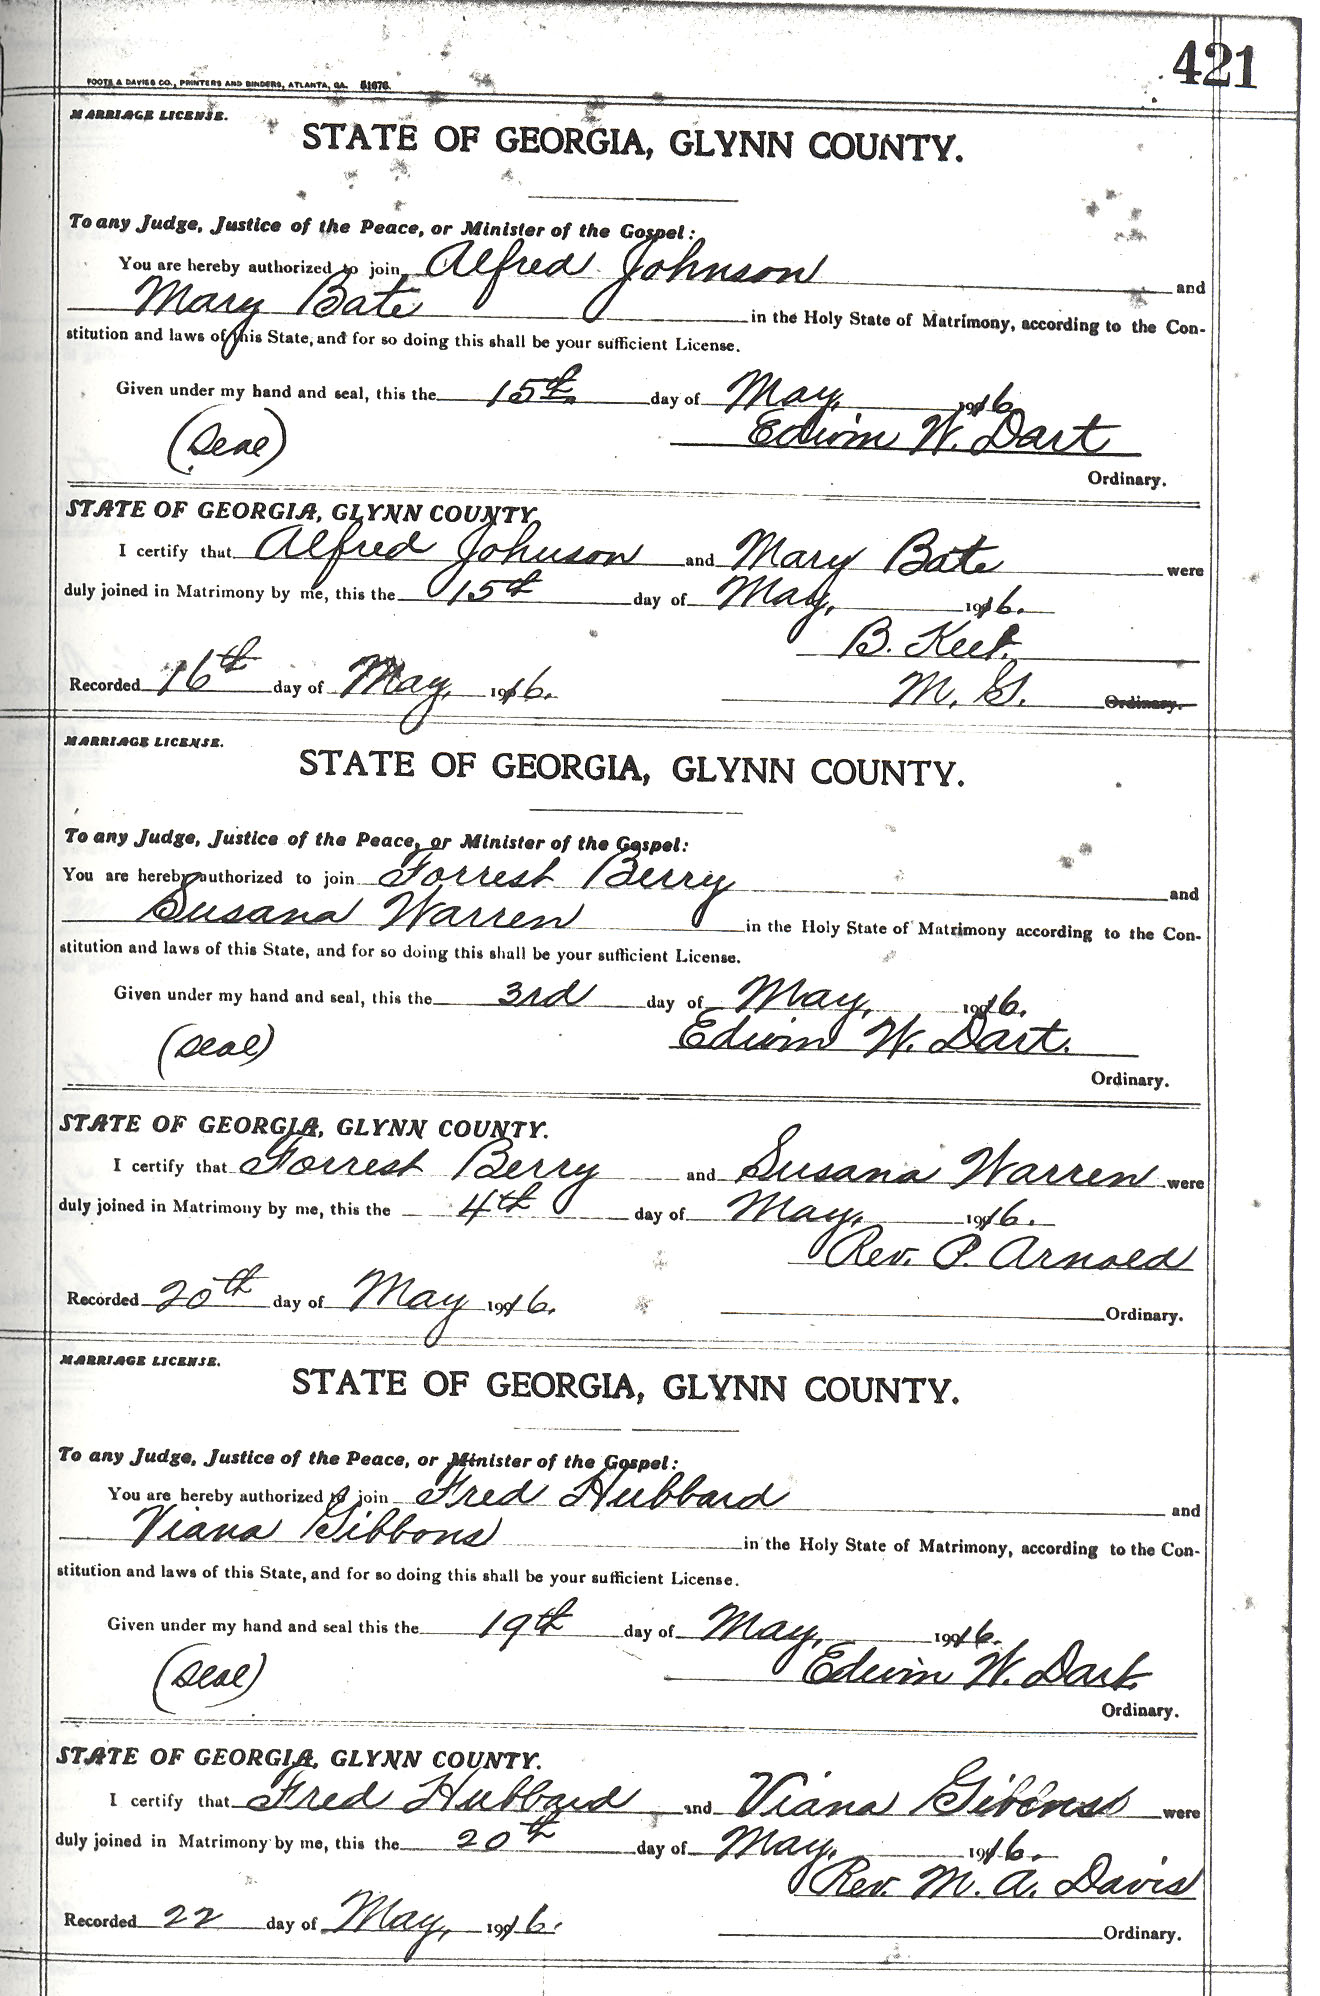 421
FOOTE & DAVIES CO., PRINTERS AND BINDERS, ATLANTA, GA. 51676.
MARRIAGE LICENSE.
STATE OF GEORGIA, GLYNN COUNTY.
To any Judge, Justice of the Peace, or Minister of the Gospel:
You are hereby authorized to join Alfred Johnson and
Mary Bate in the Holy State of Matrimony, according to the Con-
stitution and laws of this State, and for so doing this shall be your sufficient License.
Given under my hand and seal, this the 15th day of May, 1916
(Seal) Edwin W. Dart
Ordinary.
STATE OF GEORGIA, GLYNN COUNTY.
I certify that Alfred Johnson and Mary Bate were
duly joined in Matrimony by me, this the 15th day of May, 1916.
B. Keet.
Recorded 16th day of May, 1916. M. G. Ordinary.
MARRIAGE LICENSE.
STATE OF GEORGIA, GLYNN COUNTY.
To any Judge, Justice of the Peace, or Minister of the Gospel:
You are hereby authorized to join Forrest Berry and
Susana Warren in the Holy State of Matrimony according to the Con-
stitution and laws of this State, and for so doing this shall be your sufficient License.
Given under my hand and seal, this the 3rd day of May, 1916.
(Seal) Edwin W. Dart.
Ordinary.
STATE OF GEORGIA, GLYNN COUNTY.
I certify that Forrest Berry and Susana Warren were
duly joined in Matrimony by me, this the 4th day of May, 1916.
Rev. P. Arnold
Recorded 20th day of May 1916. Ordinary.
MARRIAGE LICENSE.
STATE OF GEORGIA, GLYNN COUNTY.
To any Judge, Justice of the Peace, or Minister of the Gospel:
You are hereby authorized to join Fred Hubbard and
Viana Gibbons in the Holy State of Matrimony, according to the Con-
stitution and laws of this State, and for so doing this shall be your sufficient License.
Given under my hand and seal this the 19th day of May, 1916.
(Seal) Edwin W. Dart.
Ordinary.
STATE OF GEORGIA, GLYNN COUNTY.
I certify that Fred Hubbard and Viana Gibbons were
duly joined in Matrimony by me, this the 20th day of May, 1916.
Rev. M. A. Davis
Recorded 22 day of May, 1916. Ordinary.